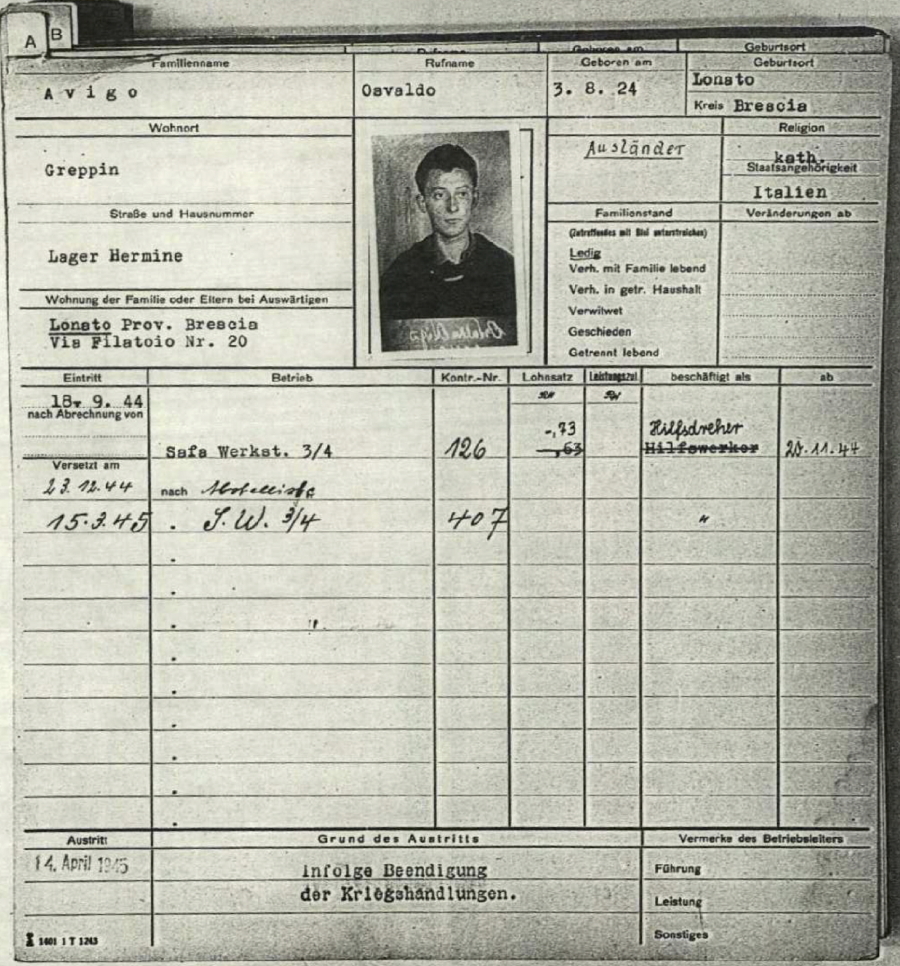 A B
Geburtsort
Familienname Rufname Geboren am Geburtsort
Avigo Osvaldo 3. 8. 24 Lonato
Kreis Brescia
Wohnort Religion
Greppin Ausländer kath.
Staatsangehörigkeit
Italien
Straße und Hausnummer Familienstand Veränderungen ab
(Zutreffendes mit Blei unterstreichen)
Lager Hermine Ledig
Verh. mit Familie lebend
Verh. in getr. Haushalt
Wohnung der Familie oder Eltern bei Auswärtigen Verwitwet
Lonato Prov. Brescia Geschieden
Via Filatoio Nr. 20
Getrennt lebend
Eintritt Betrieb Kontr.-Nr. Lohnsatz Leistungszul. beschäftigt als ab
18. 9. 44
nach Abrechnung von
-,73 Hilfsdreher
Safa Werkst. 3/4 126 -,63 Hilfswerker 20.11.44
Versetzt am
23.12.44 nach
15.3.45 " S.W. 3/4 407 "
Austritt Grund des Austritts Vermerke des Betriebsleiters
14. April 1945 infolge Beendigung Führung
der Kriegshandlungen.
Leistung
Sonstiges
1601 1 T 1243